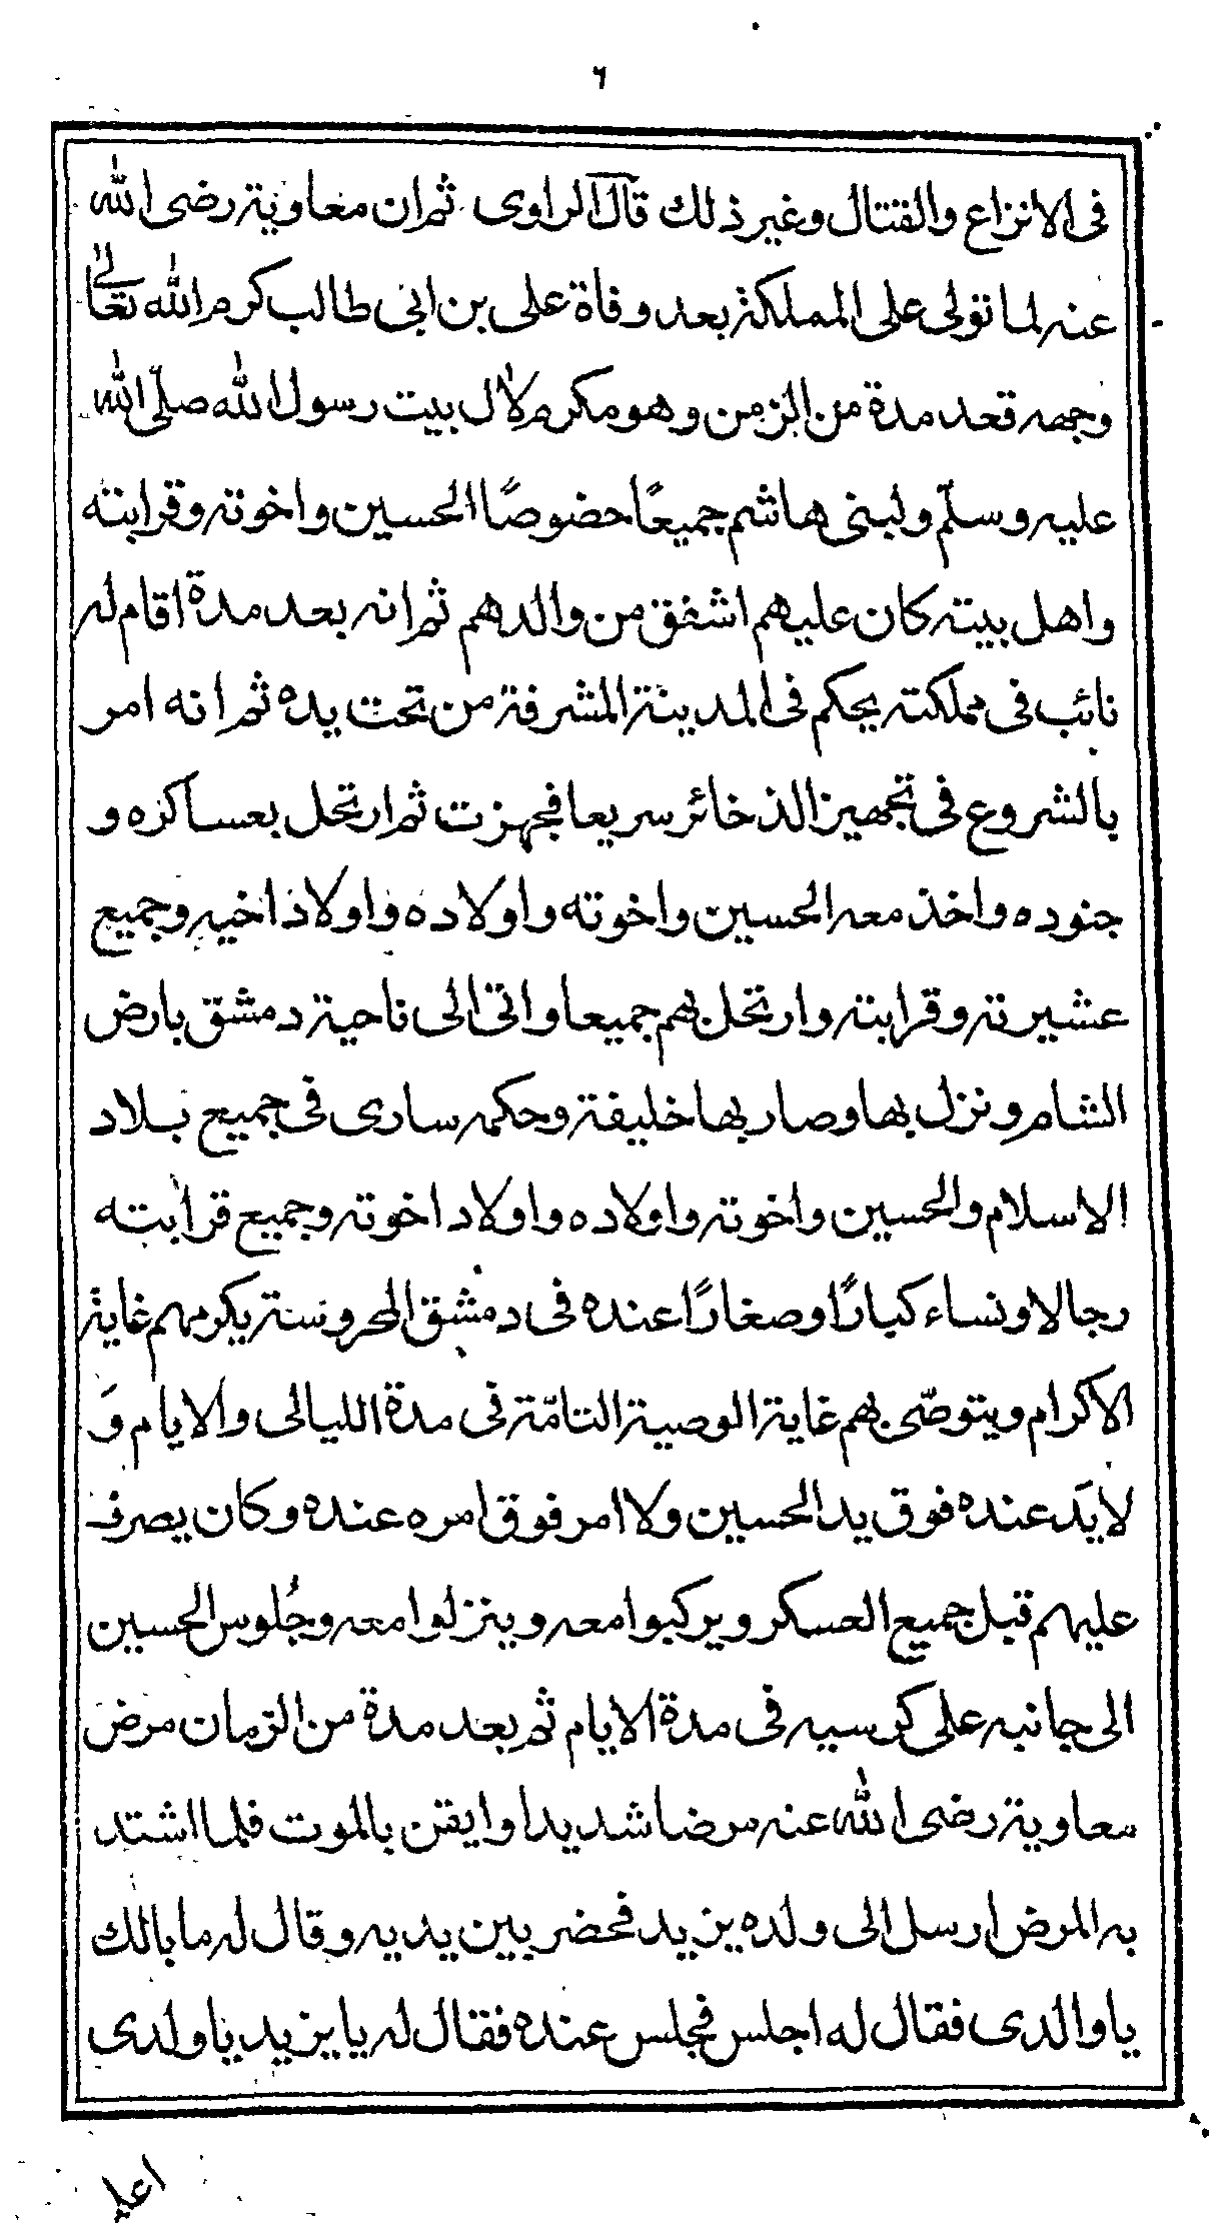 ٦
فى الانزاع والقتال وغير ذلك قال الراوى ثم ان معاوية رضى الله
عنه لما تولى على المملكة بعد وفاة على بن ابى طالب كرم الله تعالى
وجهه قعد مدة من الزمن وهو مكرم لال بيت رسول الله صلّى الله
عليه وسلّم ولبنى هاشم جميعًا خضوصًا الحسين واخوته وقرابته
واهل بيته كان عليهم اشفق من والدهم ثم انه بعد مدة اقام له
نائب فى مملكته يحكم فى المدينة المشرفة من تحت يده ثم انه امر
بالشروع فى تجهيز الذخائر سريعا فجهزت ثم ارتحل بعساكزه و
جنوده واخذ معه الحسين واخوته واولاده واولاد اخيه وجميع
عشيرته وقرابته وارتحل بهم جميعا واتى الى ناحية دمشق بارض
الشام ونزل بها وصار بها خليفة وحكمه سارى فى جميع بلاد
الاسلام والحسين واخوته واولاده واولاد اخوته وجميع قرابته
رجالا ونساء كبارًا وصغارًا عنده فى دمشق المحروسة يكرمهم غاية
الاكرام ويتوصّى بهم غاية الوصية التامّة فى مدة الليالى والايام وَ
لا يَد عنده فوق يد الحسين ولا امر فوق امره عنده وكان يصرف
عليهم قبل جميع العسكر ويركبوا معه وينزلوا معه وجُلوس الحسين
الى جانبه على كرسيه فى مدة الايام ثم بعد مدة من الزمان مرض
معاوية رضى الله عنه مرضا شديدا وايقن بالموت فلما اشتد
به المرض ارسل الى ولده يزيد فحضر بين يديه وقال له ما بالك
يا والدى فقال له اجلس فجلس عنده فقال له يا يزيد يا ولدى
اعلم